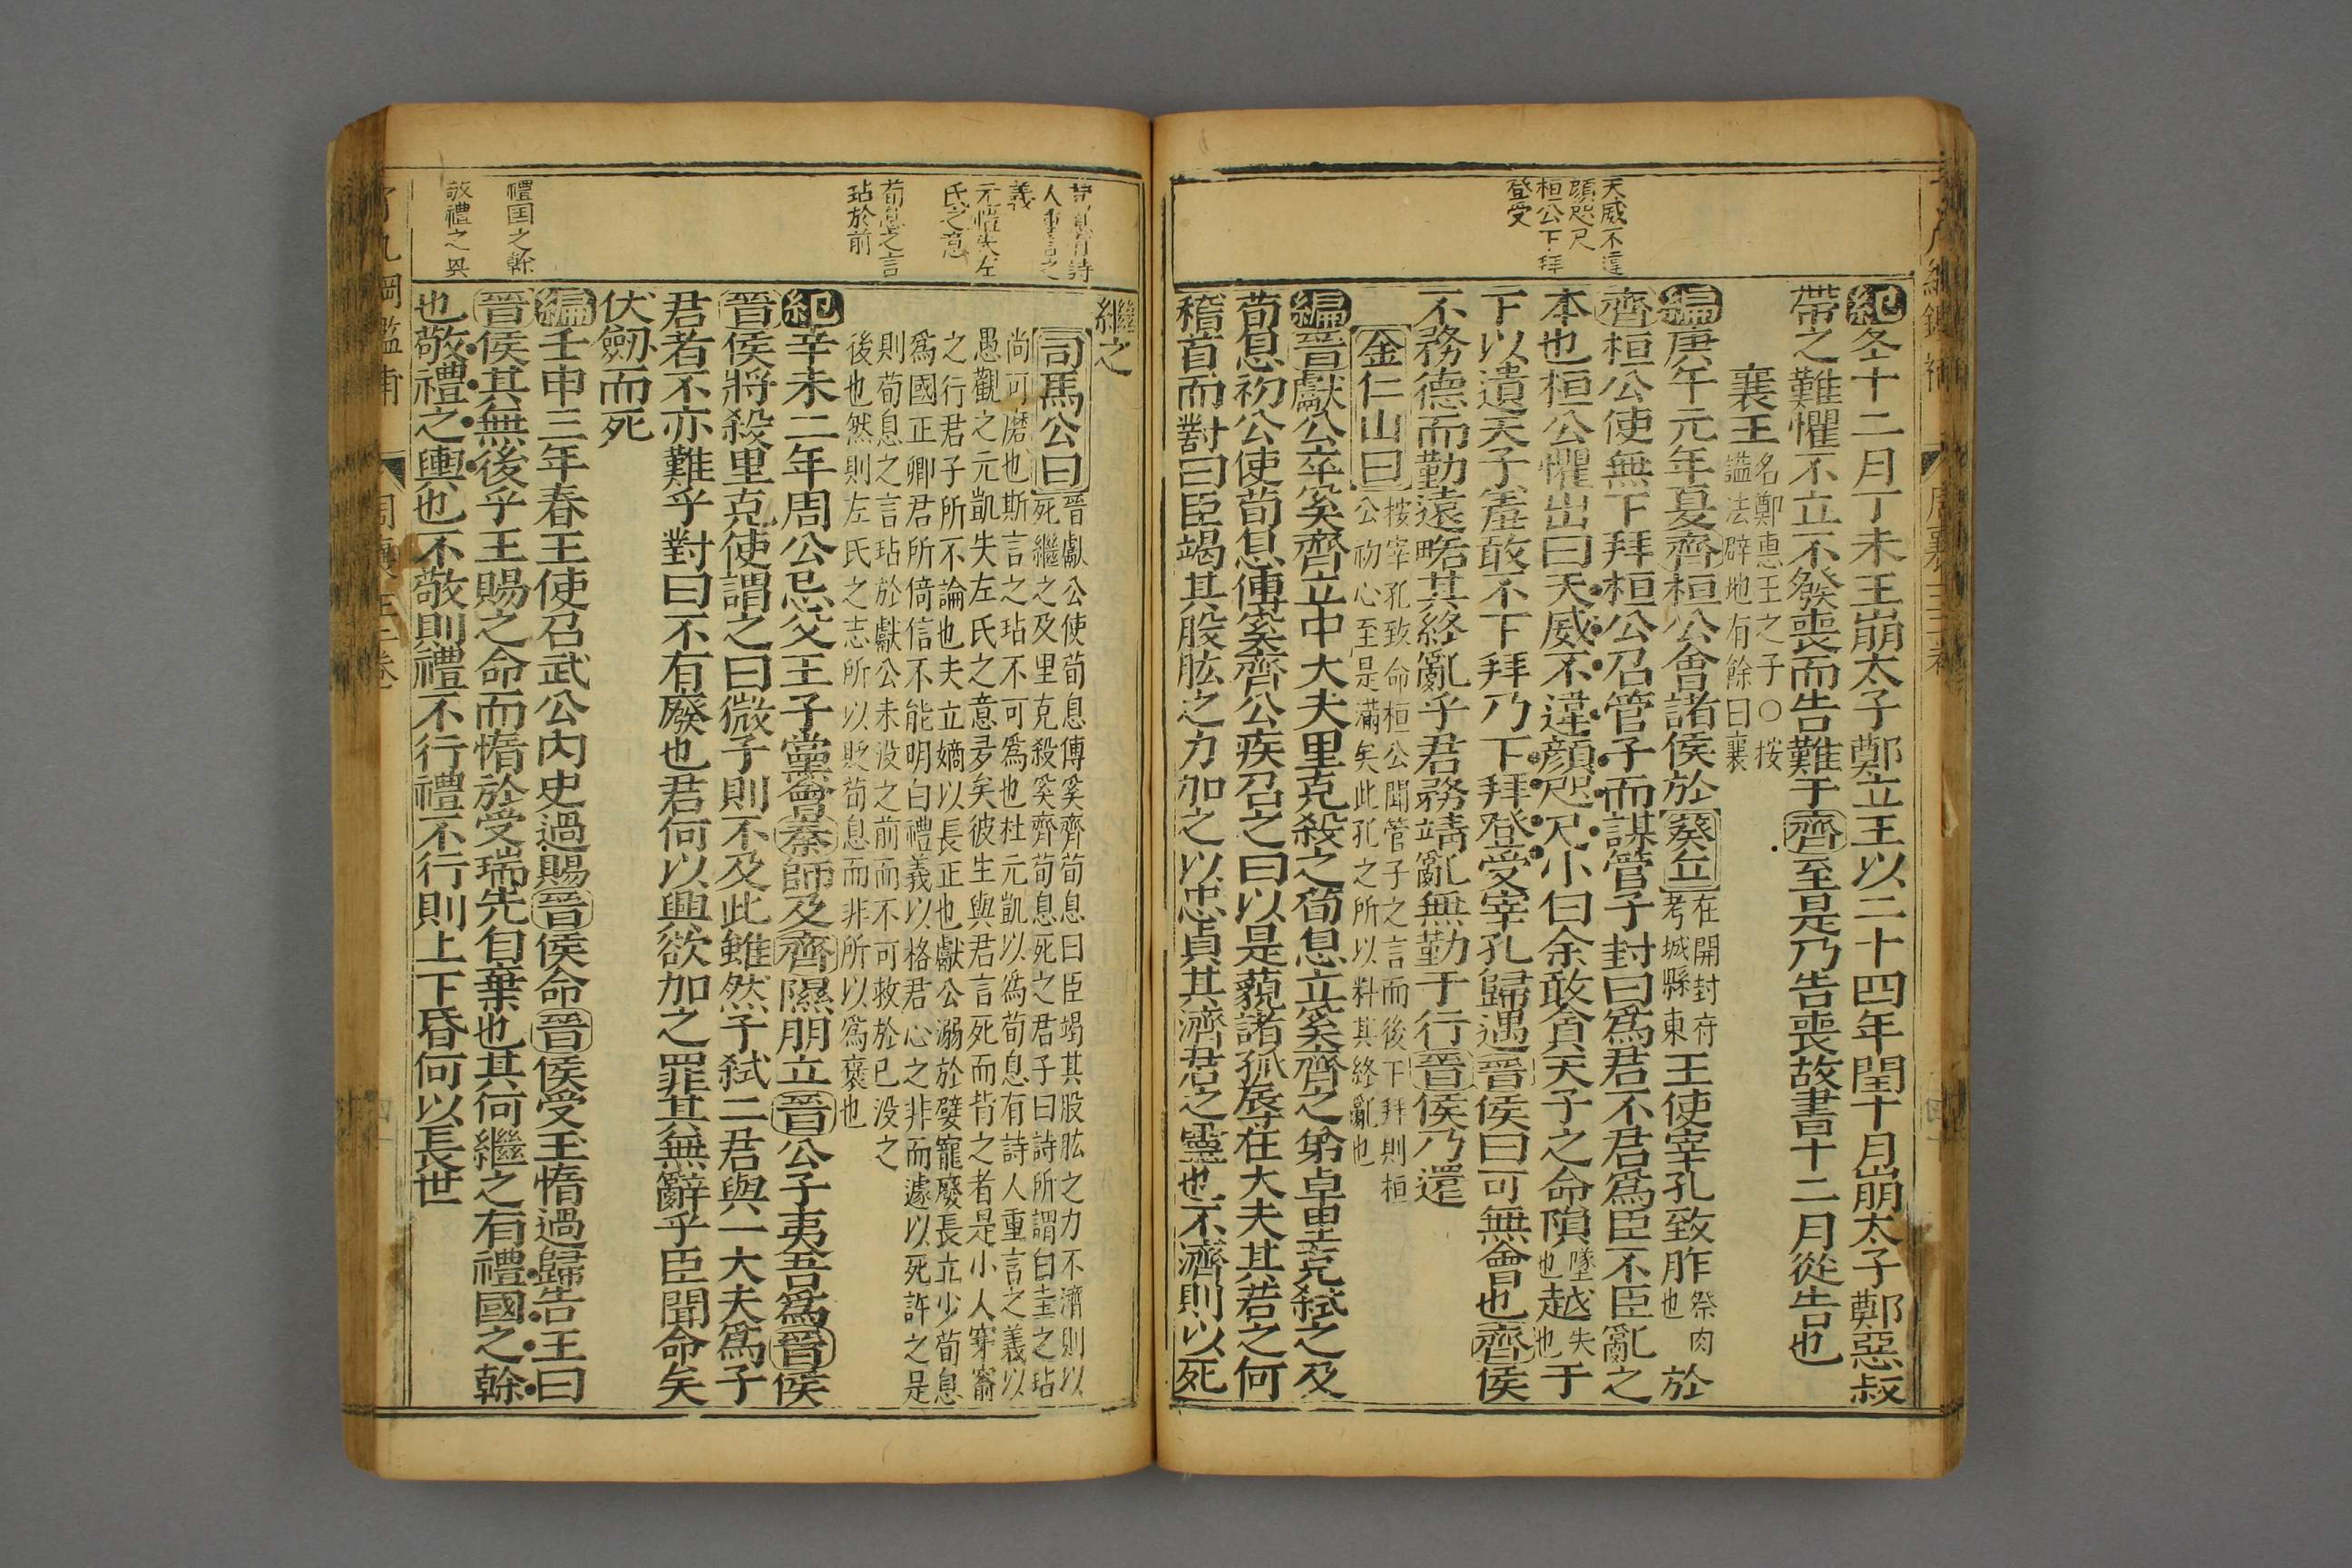 天威不違
顔咫尺
桓公下拜
登受
紀冬十二月丁未王崩太子鄭立王以二十四年閏十月崩太子鄭惡叔
帶之難懼不立不發喪而告難于齊至是乃告喪故書十二月從告也
襄王名鄭惠王之子〇按
謚法辟地有餘曰襄
編庚午元年夏齊桓公會諸侯於葵丘在開封府
考城縣東王使宰孔致胙祭肉
也於
齊桓公使無下拜桓公召管子而謀管子對曰爲君不君爲臣不臣亂之
本也桓公懼出曰天威不違顔咫尺小白余敢貪天子之命隕墜
也越失
也于
下以遺天子羞敢不下拜乃下拜登受宰孔歸遇晉侯曰可無會也齊侯
不務德而勤遠略其終亂乎君務靖亂無勤于行晉侯乃還
金仁山曰按宰孔致命桓公聞管子之言而後下拜則桓
公初心至是滿矣此孔之所以料其終亂也
編晉獻公卒奚齊立中大夫里克殺之荀息立奚齊之弟卓里克弒之及
荀息初公使荀息傅奚齊公疾召之曰以是藐諸孤辱在大夫其若之何
稽首而對曰臣竭其股肱之力加之以忠貞其濟君之靈也不濟則以死
人重言之
義
元愷失左
氏之意
荀息之言
玷於前
禮国之幹
敬禮之輿
繼之
司馬公曰晉獻公使荀息傅奚齊荀息曰臣竭其股肱之力不濟則以
死繼之及里克殺奚齊荀息死之君子曰詩所謂白圭之玷
尚可磨也斯言之玷不可爲也杜元凱以爲荀息有詩人重言之義以
愚觀之元凱失左氏之意多矣彼生與君言死而背之者是小人穿窬
之行君子所不論也夫立嫡以長正也獻公溺於嬖寵廢長立少荀息
爲國正卿君所倚信不能明白禮義以格君心之非而遽以死許之是
則荀息之言玷於獻公未没之前而不可救於已没之
後也然則左氏之志所以貶荀息而非所以爲褒也
紀辛未二年周公忌父王子黨會秦師及齊隰朋立晉公子夷吾爲晉侯
晉侯將殺里克使謂之曰微子則不及此雖然子弒二君與一大夫爲子
君者不亦難乎對曰不有廢也君何以興欲加之罪其無辭乎臣聞命矣
伏劒而死
編壬申三年春王使召武公内史過賜晉侯命晉侯受玉惰過歸告王曰
晉侯其無後乎王賜之命而惰於受瑞先自棄也其何繼之有禮國之幹
也敬禮之輿也不敬則禮不行禮不行則上下昏何以長世